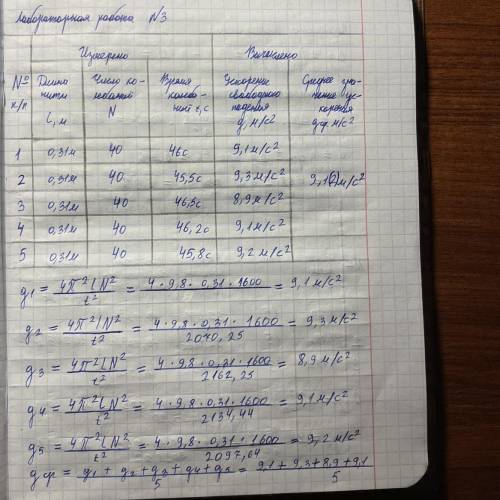 Лабораторная работа №3
Измерено Вычислено
№ п/п Длина нити l, м Число ко-лебаний N Время колеба-ний t, с Ускорение свободного падения g, м/с² Среднее зна-чение ус-корения gср, м/с²
1 0,31м 40 46с 9,1м/с²
2 0,31м 40 45,5с 9,3м/с² 9,12м/с²
3 0,31м 40 46,5с 8,9м/с²
4 0,31м 40 46,2с 9,1м/с²
5 0,31м 40 45,8с 9,2м/с²
g1 = 4π²lN²/t² = 4·9,8·0,31·1600 = 9,1м/с²
g2 = 4π²lN²/t² = 4·9,8·0,31·1600/2070,25 = 9,3м/с²
g3 = 4π²lN²/t² = 4·9,8·0,31·1600/2162,25 = 8,9м/с²
g4 = 4π²lN²/t² = 4·9,8·0,31·1600/2134,44 = 9,1м/с²
g5 = 4π²lN²/t² = 4·9,8·0,31·1600/2097,64 = 9,2м/с²
gср = g1+g2+g3+g4+g5/5 = 9,1+9,3+8,9+9,1/5